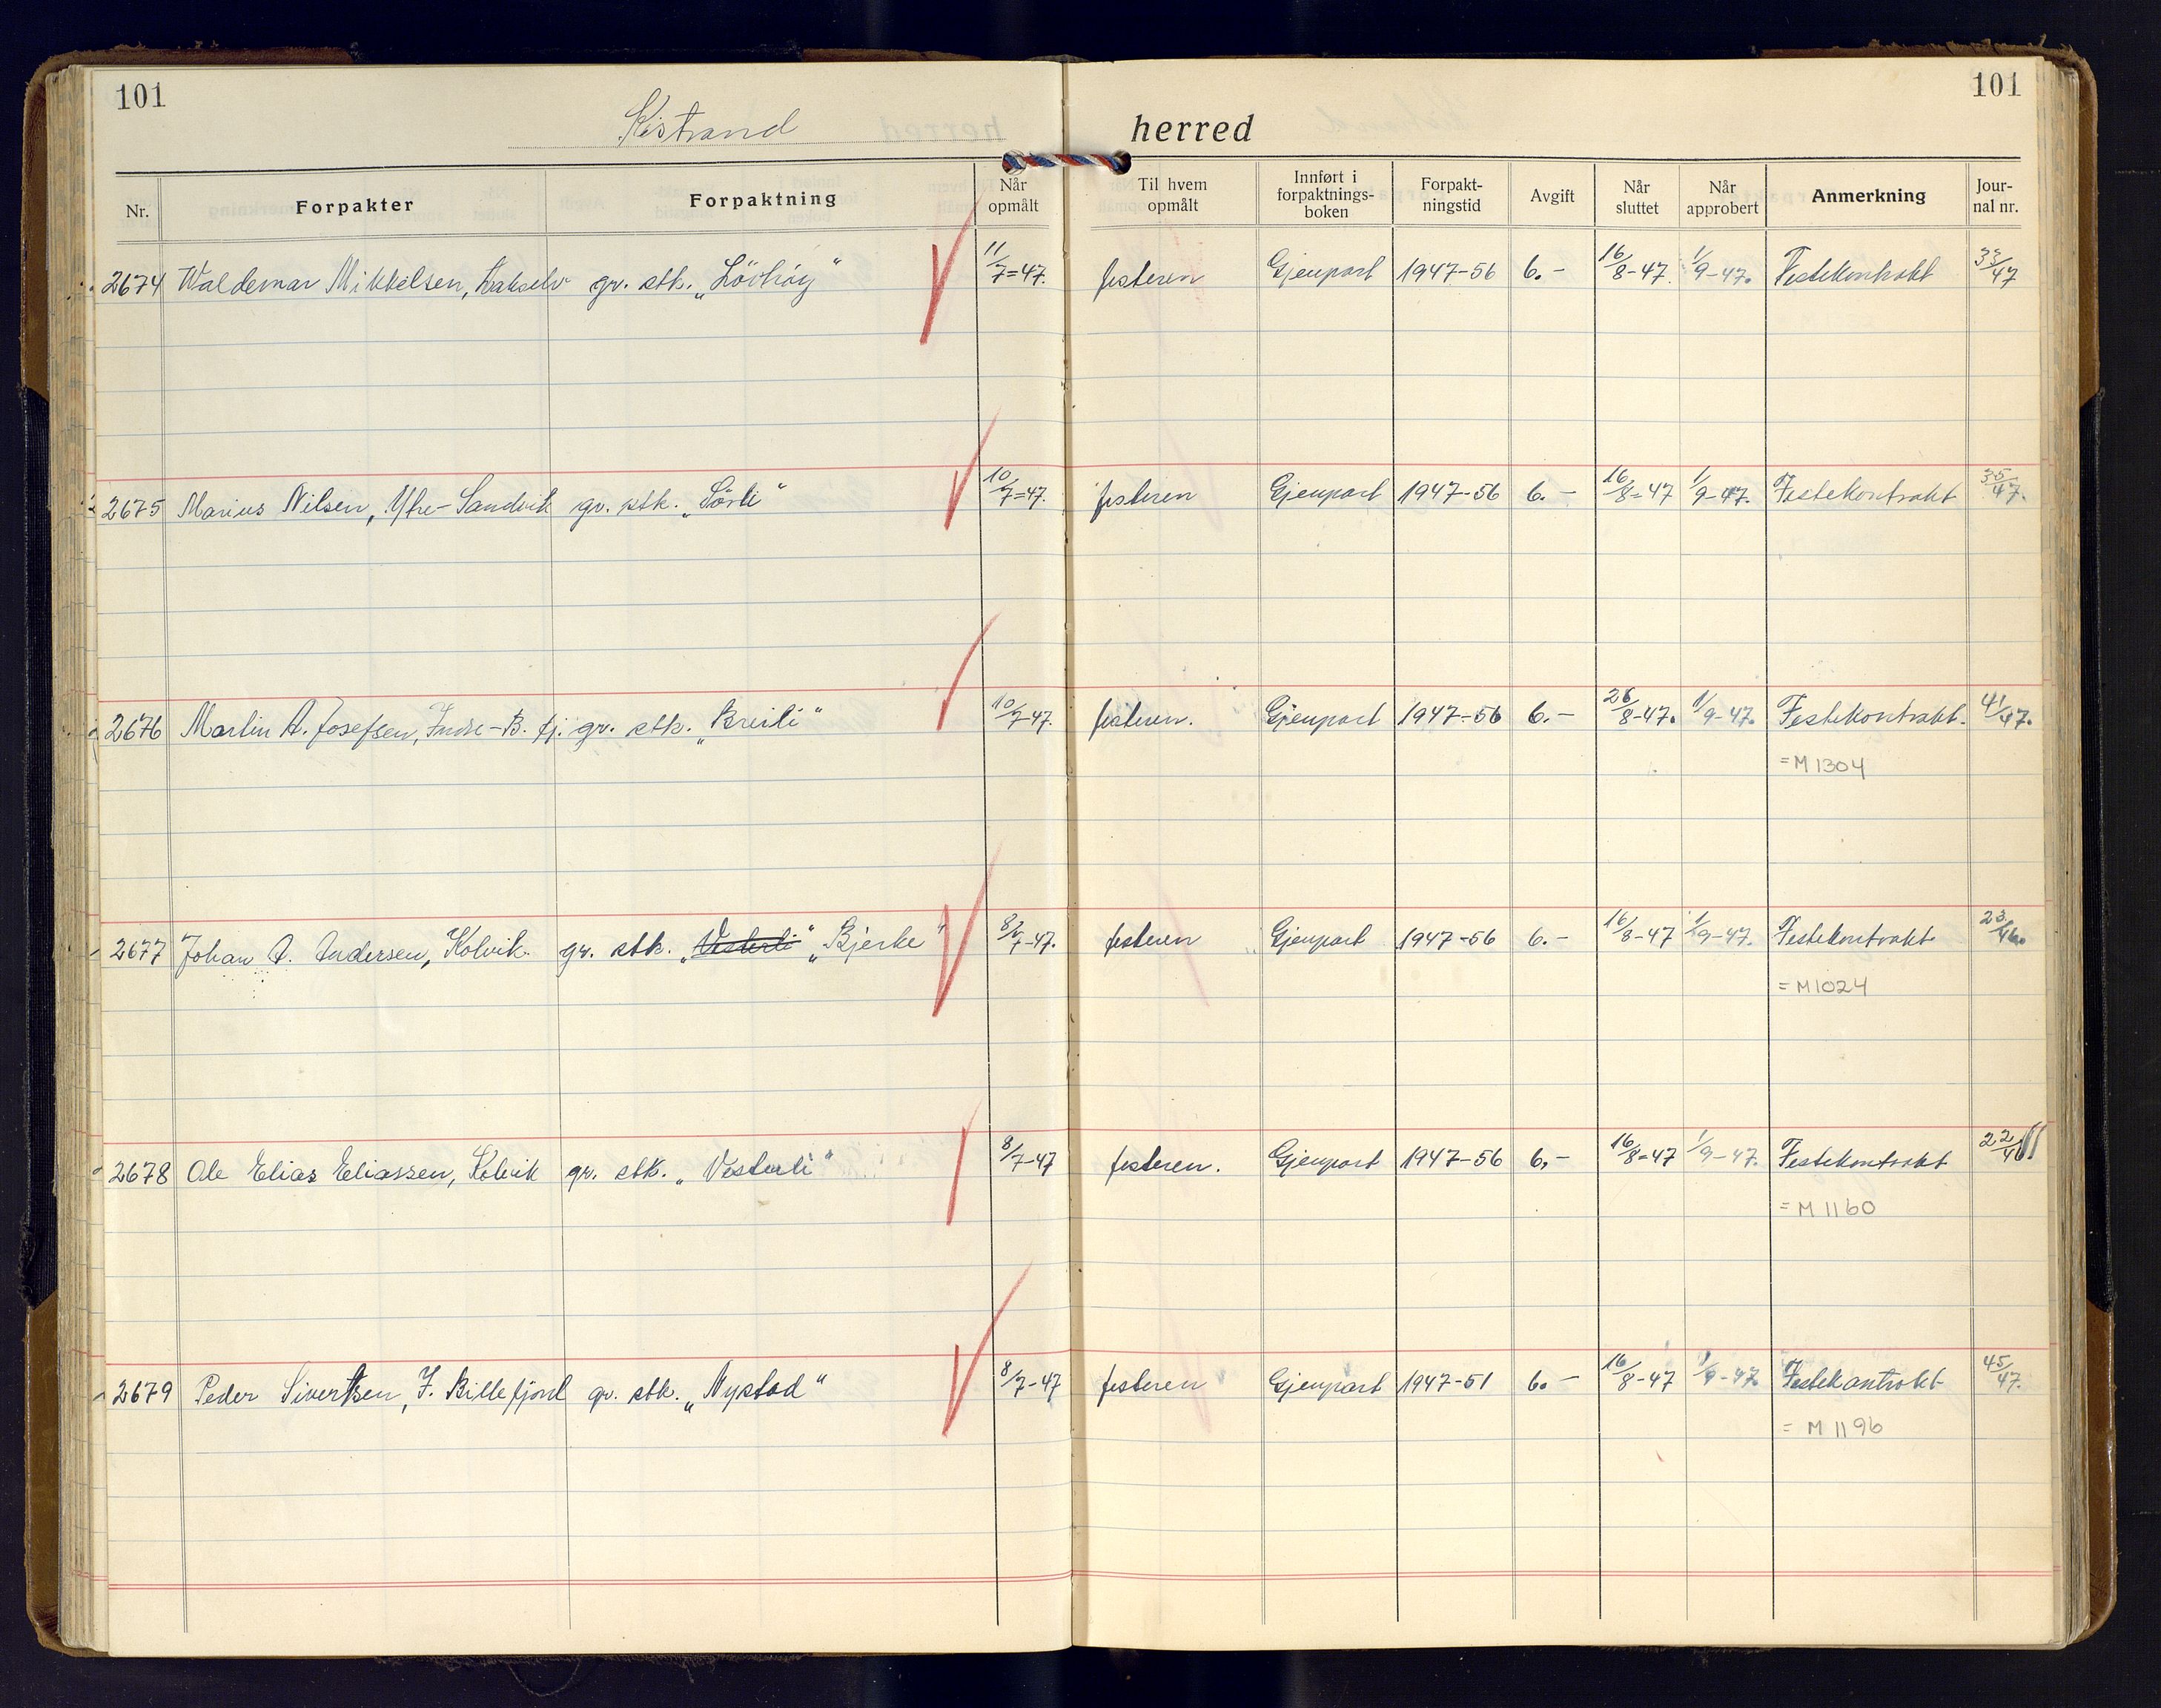 101
101
Kistrand herred
Nr. Forpakter Forpaktning Når opmålt Til hvem opmålt Innført i forpaktnings-boken Forpakt-ningstid Avgift Når sluttet Når approbert Anmerkning Jour-nal nr.
2674 Waldemar Mikkelsen, gr. stk. „Lövhöy“ 11/7=47. festeren Gjenpart 1947-56 6.- 16/8-47. 1/9-47. Festekontrakt 33/47
2675 Marius Nilsen, Ytre-Sandvik gr. stk. „Sörli“ 10/7=47. festeren Gjenpart 1947-56 6.- 16/8-47 1/9-47. Festekontrakt 35/47.
2676 Martin A. Josefsen, Indre-B. fj. gr. stk. „Breili“ 10/7-47. festeren. Gjenpart 1947-56 6.- 26/8-47. 1/9-47. Festekontrakt. 41/47.
= M 1304
2677 Johan A. Andersen, Kolvik. gr. stk. „Vesterli“ „Bjerke“ 8/7-47. festeren Gjenpart 1947-56 6.- 16/8-47 1/9-47. Festekontrakt 23/46.
= M 1024
2678 Ole Elias Eliassen, Kolvik gr. stk. „Vesterli“ 8/7-47 festeren. Gjenpart 1947-56 6,- 16/8-47 1/9-47. Festekontrakt
= M 1160
2679 Peder Sivertsen, I. Billefjord gr. stk. „Nystad“ 8/7-47 festeren Gjenpart 1947-51 6.- 16/8-47 1/9-47 Festekontrakt 45/47.
= M 1196